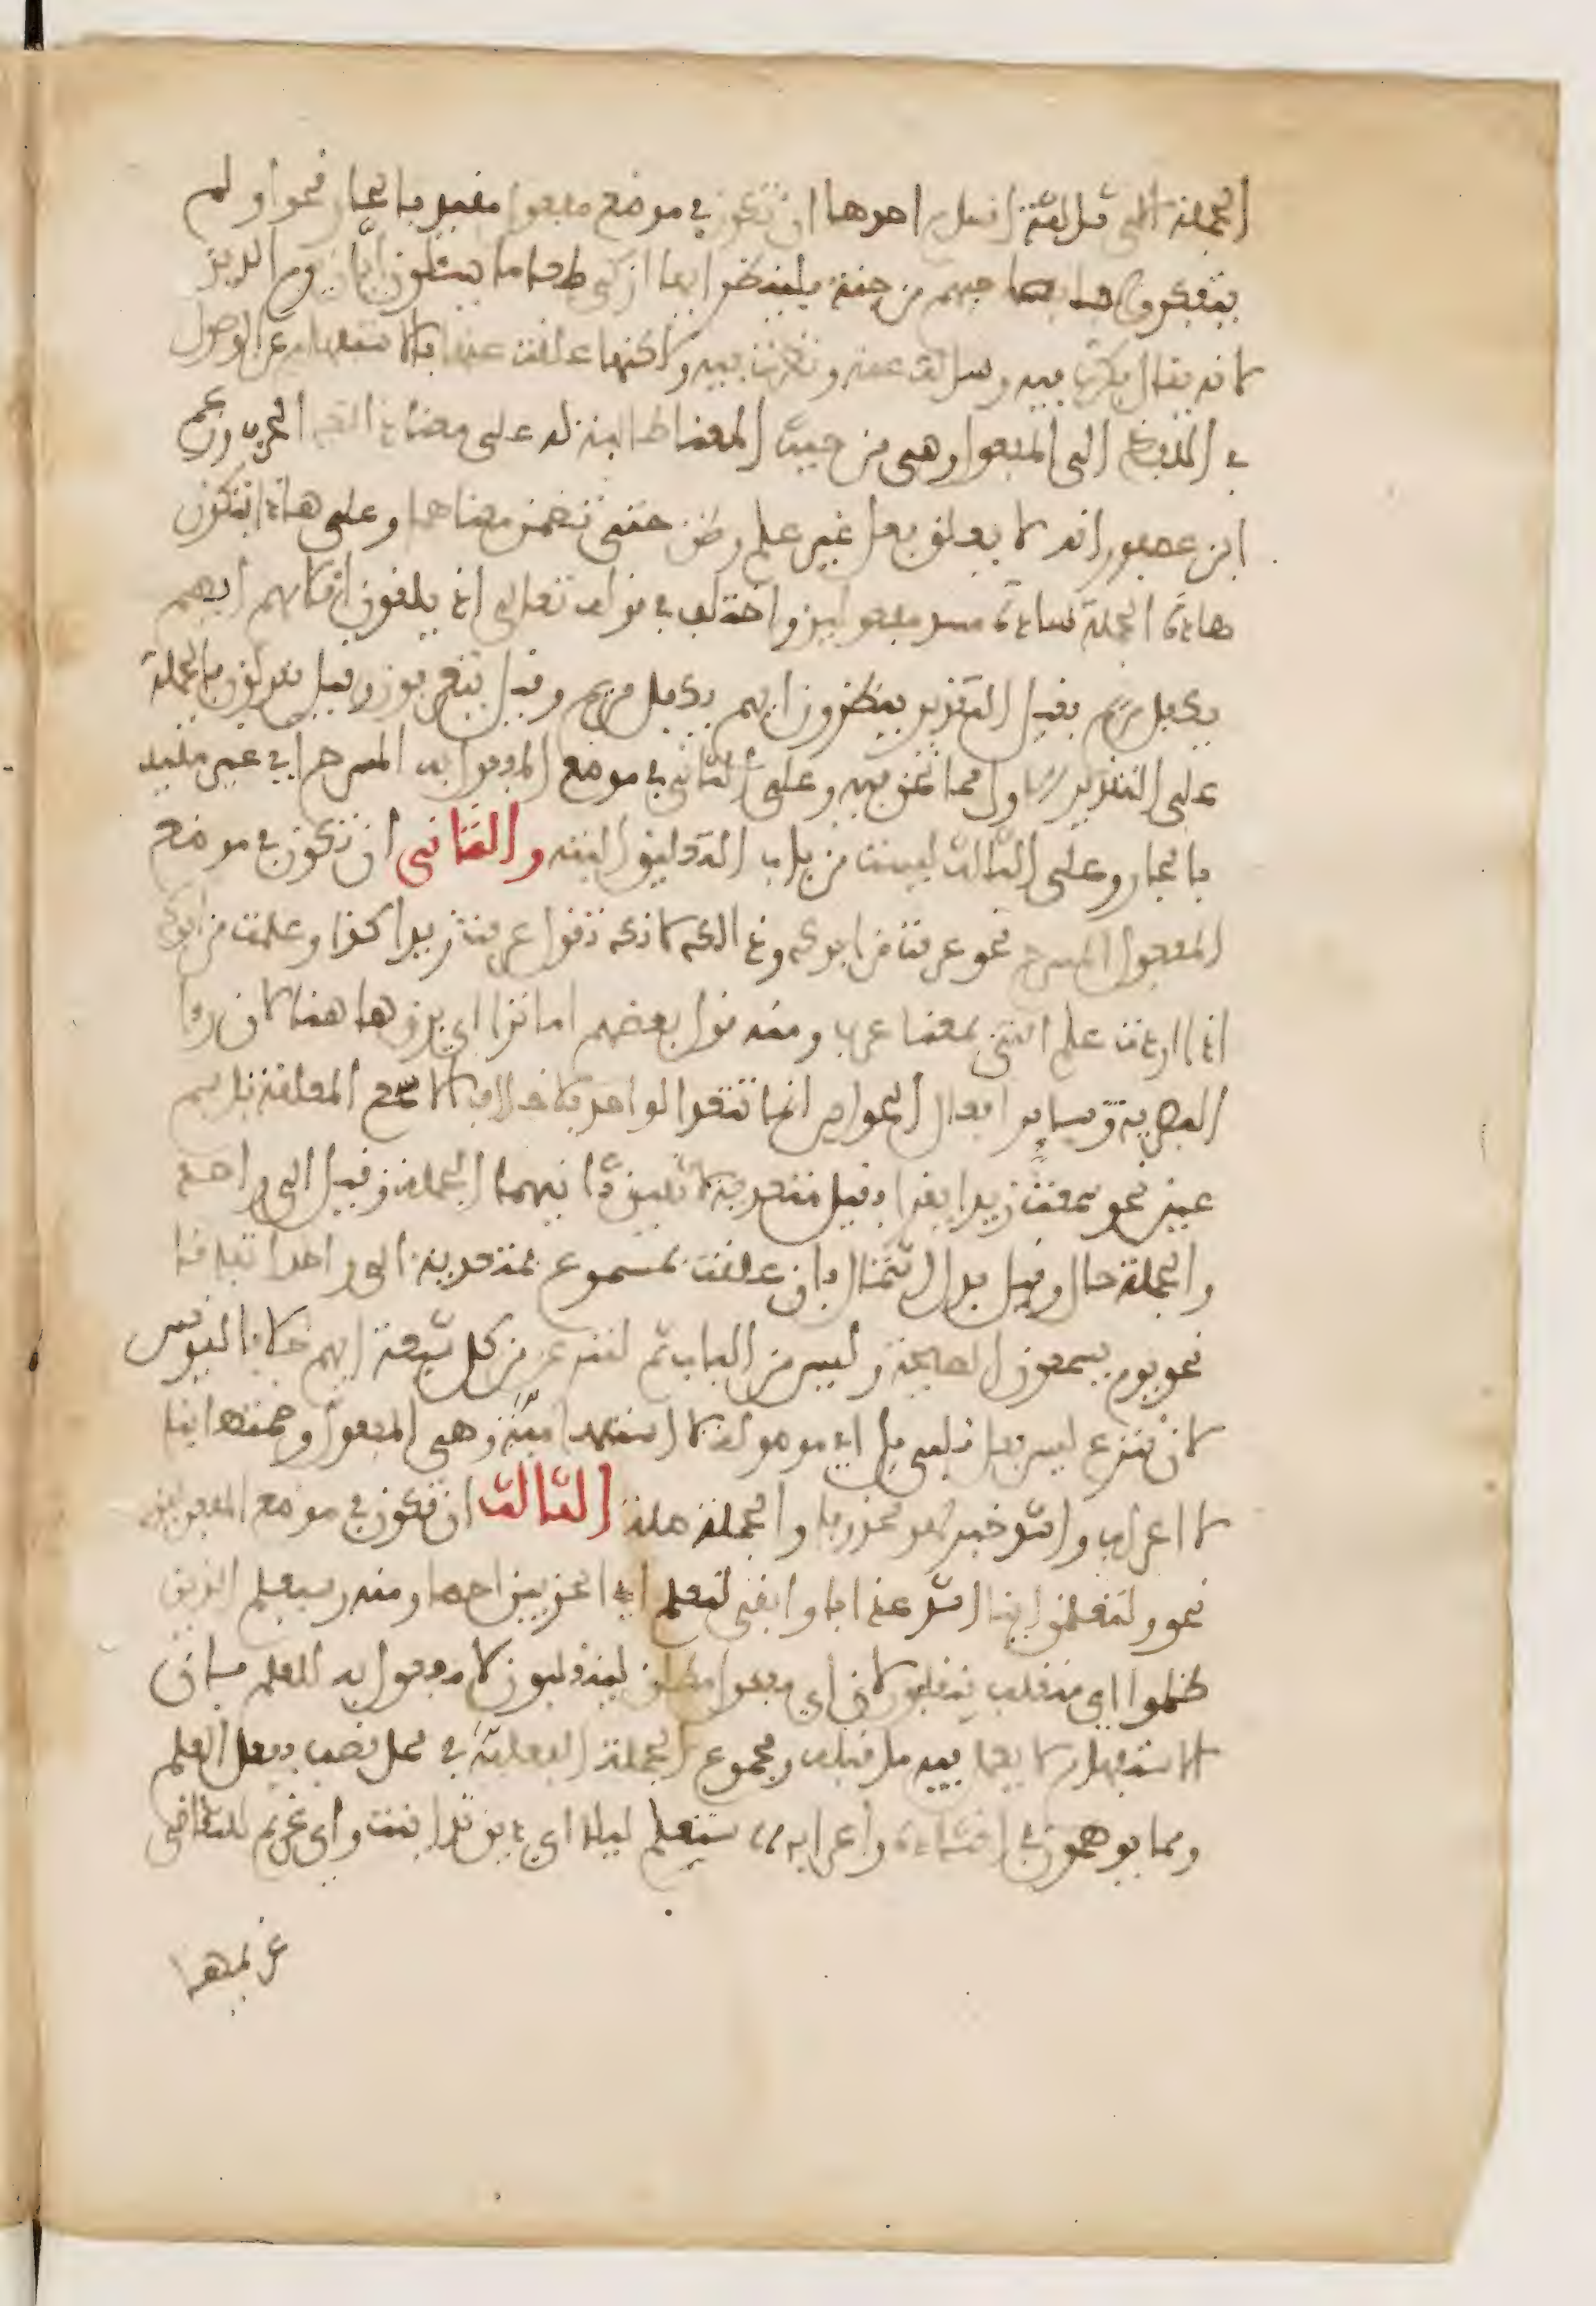 الجملة التى ثلاثة اقسام احدها ان تكون في موضع مفعول مقيد بالجار نحو او لم
يتفكروا ما بصاحبهم من جنة فلينظر ايها ازكى طعاما يسئلون ايان يوم الدين
لانه يقال فكرت فيه وسالت عنه ونظرت فيه ولاكنها علقت عنها بالاستفهام عن الوصول
في اللفظ الى المفعول وهى من حيث المعنا طالبة له على معنا ذالك الحرف وزعم
ابن عصفور انه لا يعلق فعل غير علم وظن حتى تضمن معناهما وعلى هاذا فتكون
هاذه الجملة سادة مسد مفعولين واختلف في قوله تعالى اذ يلقون اقلامهم ايهم
يكفل مريم فقيل التقدير ينظرون ايهم يكفل مريم وقيل يتعرفون وقيل يقولون فالجملة
على التقدير الاول مما نحن فيه وعلى الثانى في موضع المفعول به المسرح اي غير مقيد
بالجار وعلى الثالث ليست من باب التعليق البتة والثانى ان تكون في موضع
المفعول المسرح نحو عرفت من ابوك وذالك لانك تقول عرفت زيدا كذا وعلمت من ابوك
اذا اردت علم التى بمعنا عرف ومنه قول بعضهم اما ترا اي برق هاهنا لان را
البصرية وساير افعال الحواس انما تتعدا لواحد بلا خلاف الا سمع المعلقة باسم
عين نحو سمعت زيدا يقرا فقيل متعدية لاثنين ثانيهما الجملة وقيل الى واحد
والجملة حال وقيل بدل اشتمال فان علقت بمسموع فمتعدية الى واحد اتفاقا
نحو يوم يسمعون الصيحة وليس من الباب ثم لننزعن من كل شيعة ايهم خلافا ليونس
لان ننزع ليس بفعل قلبى بل اي موصولة لا استفهامية وهى المفعول وضمتها بنا
لا اعراب واشد خبر لهو محذوفا والجملة صلة الثالث ان تكون في موضع المفعولين
نحو ولتعلمن اينا اشد عذابا وابقى لنعلم اي الحزبين احصا ومنه وسيعلم الذين
ظلموا اي منقلب ينقلبون لان اي مفعول مطلق لينقلبون لا مفعول به للعلم لان
الاستفهام لا يعمل فيه ما قبله ومجموع الجملة الفعلية في محل نصب بفعل العلم
ومما يوهمون في انشاده واعرابه ستعلم ليلا اي دين تداينت واي غريم للتقاضى
غريمها